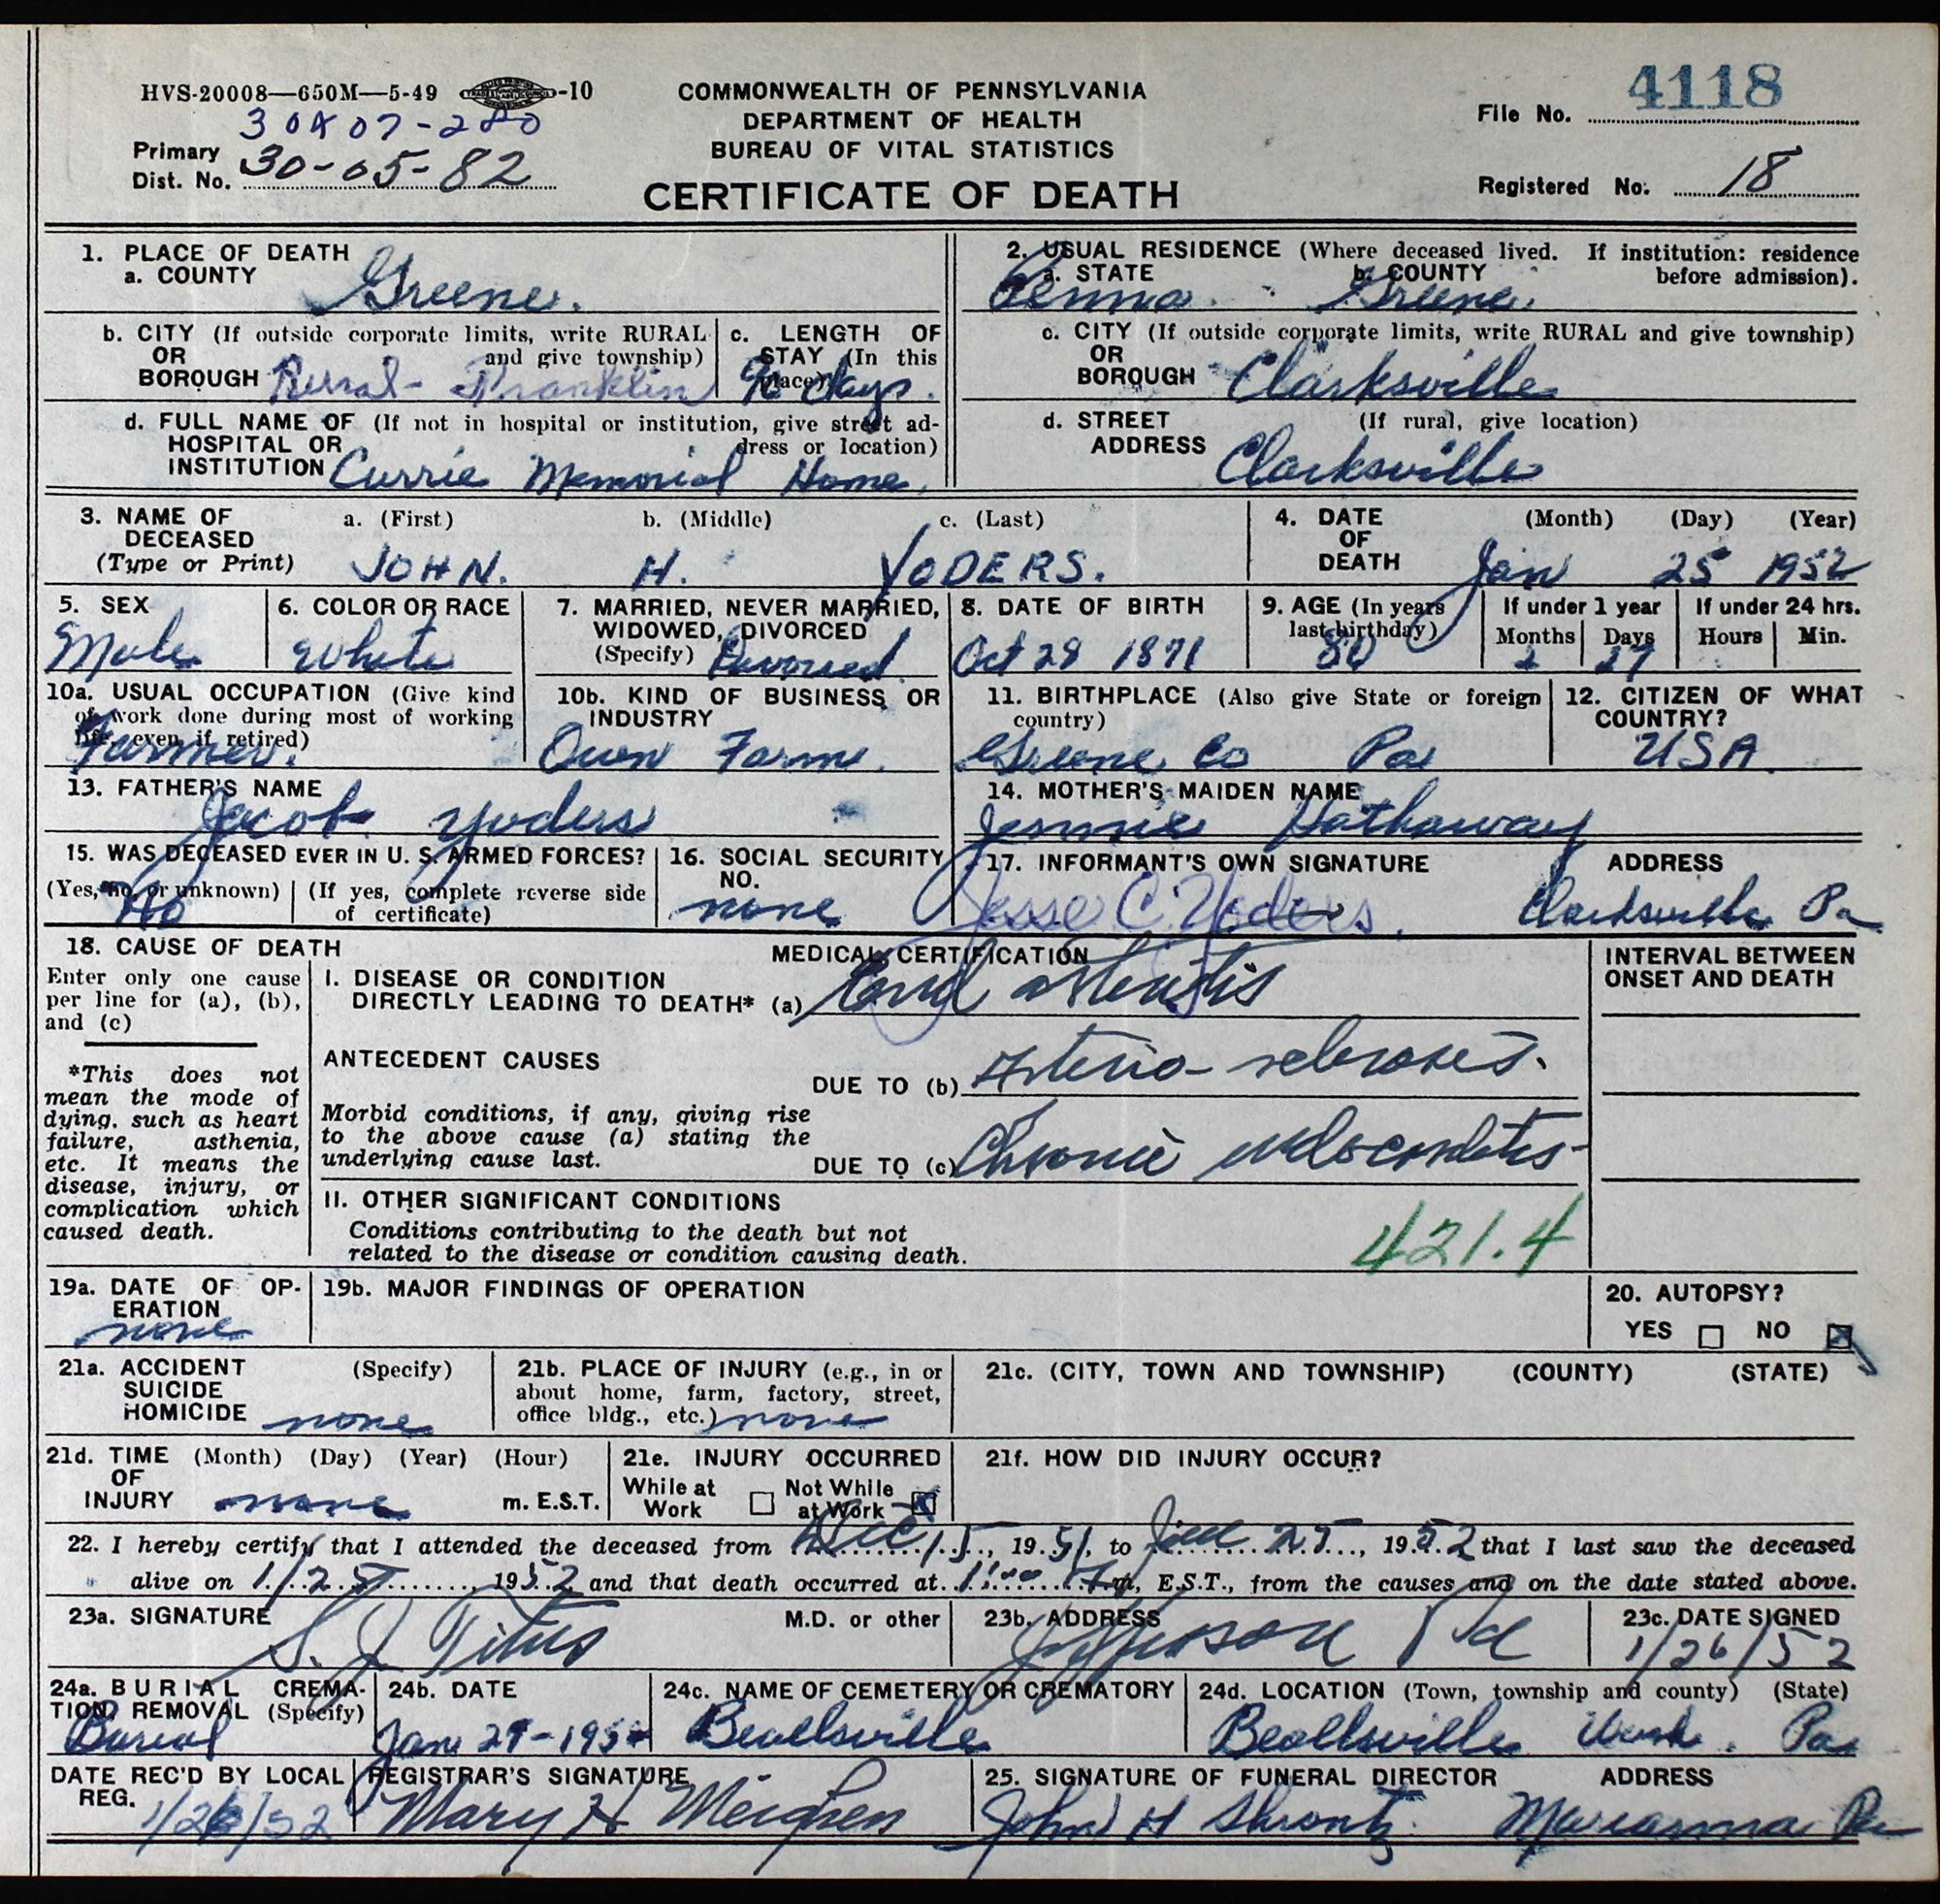 HVS-20008—650M—5-49 -10
COMMONWEALTH OF PENNSYLVANIA
DEPARTMENT OF HEALTH
BUREAU OF VITAL STATISTICS
CERTIFICATE OF DEATH
File No. 4118
Primary Dist. No. 30-05-82
Registered No. 18
1. PLACE OF DEATH
a. COUNTY Greene.
2. USUAL RESIDENCE (Where deceased lived. If institution: residence before admission).
a. STATE Penna. b. COUNTY Greene.
b. CITY (If outside corporate limits, write RURAL and give township) OR BOROUGH Rural- Franklin
c. LENGTH OF STAY (In this place) days.
c. CITY (If outside corporate limits, write RURAL and give township) OR BOROUGH Clarksville
d. FULL NAME OF (If not in hospital or institution, give street address or location) HOSPITAL OR INSTITUTION Currie Memorial Home.
d. STREET ADDRESS (If rural, give location) Clarksville
3. NAME OF DECEASED (Type or Print)
a. (First) JOHN.
b. (Middle) H.
c. (Last) YODERS.
4. DATE OF DEATH (Month) (Day) (Year) Jan 25 1952
5. SEX Male
6. COLOR OR RACE White
7. MARRIED, NEVER MARRIED, WIDOWED, DIVORCED (Specify) Divorced.
8. DATE OF BIRTH Oct 28 1871
9. AGE (In years last birthday) 80
If under 1 year Months 2 Days 27
If under 24 hrs. Hours Min.
10a. USUAL OCCUPATION (Give kind of work done during most of working life, even if retired) Farmer.
10b. KIND OF BUSINESS OR INDUSTRY Own Farm.
11. BIRTHPLACE (Also give State or foreign country) Greene Co Pa
12. CITIZEN OF WHAT COUNTRY? USA
13. FATHER'S NAME Jacob Yoders
14. MOTHER'S MAIDEN NAME Jennie Hathaway
15. WAS DECEASED EVER IN U. S. ARMED FORCES?
(Yes, no, or unknown) No (If yes, complete reverse side of certificate)
16. SOCIAL SECURITY NO. none
17. INFORMANT'S OWN SIGNATURE Jesse C. Yoders. ADDRESS Clarksville Pa
18. CAUSE OF DEATH
MEDICAL CERTIFICATION
INTERVAL BETWEEN ONSET AND DEATH
Enter only one cause per line for (a), (b), and (c)
I. DISEASE OR CONDITION DIRECTLY LEADING TO DEATH* (a)
*This does not mean the mode of dying, such as heart failure, asthenia, etc. It means the disease, injury, or complication which caused death.
ANTECEDENT CAUSES
DUE TO (b) Arterio-sclerosis.
Morbid conditions, if any, giving rise to the above cause (a) stating the underlying cause last.
DUE TO (c) Chronic endocarditis
II. OTHER SIGNIFICANT CONDITIONS
Conditions contributing to the death but not related to the disease or condition causing death.
421.4
19a. DATE OF OPERATION none
19b. MAJOR FINDINGS OF OPERATION
20. AUTOPSY? YES NO
21a. ACCIDENT SUICIDE HOMICIDE (Specify) none
21b. PLACE OF INJURY (e.g., in or about home, farm, factory, street, office bldg., etc.) none
21c. (CITY, TOWN AND TOWNSHIP) (COUNTY) (STATE)
21d. TIME OF INJURY (Month) (Day) (Year) (Hour) none m. E.S.T.
21e. INJURY OCCURRED While at Work Not While at Work
21f. HOW DID INJURY OCCUR?
22. I hereby certify that I attended the deceased from Dec 15, 1951, to Jan 25, 1952 that I last saw the deceased
alive on 1/25, 1952 and that death occurred at m, E.S.T., from the causes and on the date stated above.
23a. SIGNATURE S. J. Titus M.D. or other
23b. ADDRESS Jefferson Pa
23c. DATE SIGNED 1/26/52
24a. BURIAL CREMATION, REMOVAL (Specify) Burial
24b. DATE
24c. NAME OF CEMETERY OR CREMATORY Beallsville
24d. LOCATION (Town, township and county) (State) Beallsville Wash. Pa
DATE REC'D BY LOCAL REG. 1/26/52
REGISTRAR'S SIGNATURE Mary H Meighen
25. SIGNATURE OF FUNERAL DIRECTOR John H Shrontz. ADDRESS Marianna Pa